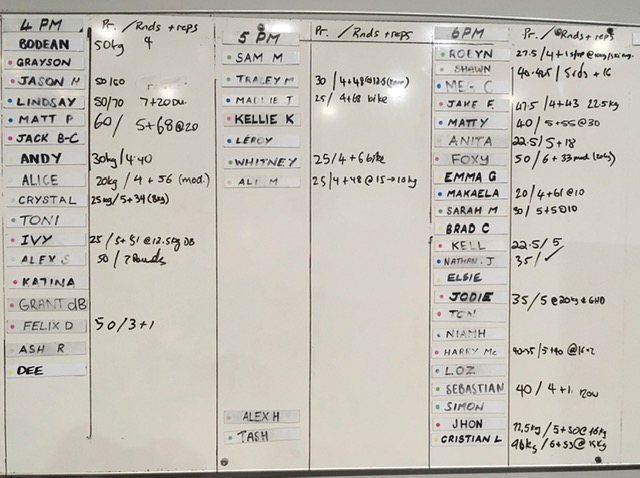 4 PM Pr. /Rnds + reps
BODEAN 50kg 4
GRAYSON
JASON H 50/60
LINDSAY 50/70 7+20 DU.
MATT P 60/ 5+68@20
JACK B-C
ANDY 30kg/4.40
ALICE 20kg / 4 + 56 (mod.)
CRYSTAL 25kg/5+34(8kg)
TONI
IVY 25 / 5+51 @12.5kg DB
ALEX S 50 / 7 Rounds
KATINA
GRANT dB
FELIX D 50/3+1
ASH R
DEE
5 PM Pr. /Rnds + reps
SAM M
TRALEY M 30 / 4+48@12.5
MADDIE T 25/ 4+68 bike
KELLIE K
LEROY
WHITNEY 25/4+6 bike
ALI M 25/4+48@15→10kg
ALEX H
TASH
6PM Pr. /Rnds + reps
ROBYN 27.5/4+
SHAWN / 5 rds + 16
C
JAKE F 47.5/4+43 22.5kg
MATTY 40/5+55@30
ANITA 22.5/5+18
FOXY 50 / 6+33 mod
EMMA G
MAKAELA 20/4+61@10
SARAH M 30/5+5@10
BRAD C
KELL 22.5/5
NATHAN. J 35/✓
ELSIE
JODIE 35/5@20kg & GHD
TON
NIAMH
HARRY Mc /5+40@
LOZ
SEBASTIAN 40/4+1. row
SIMON
JHON 77.5kg/5+50@16kg
CRISTIAN L /6+53@15kg